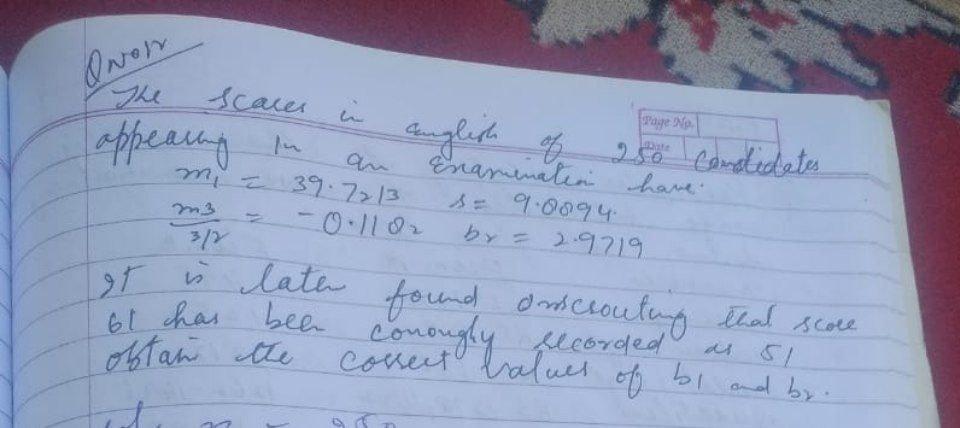 Q No 1V
The scores in english of 250 Candidates
Page No.
Date
appearing in an Examination have:
m1 = 39.7213 s = 9.0094
m3/3/2 = -0.1102 b2 = 2.9719
It is later found on scrouting that score
61 has been wrongly recorded as 51
obtain the correct values of b1 and b2.